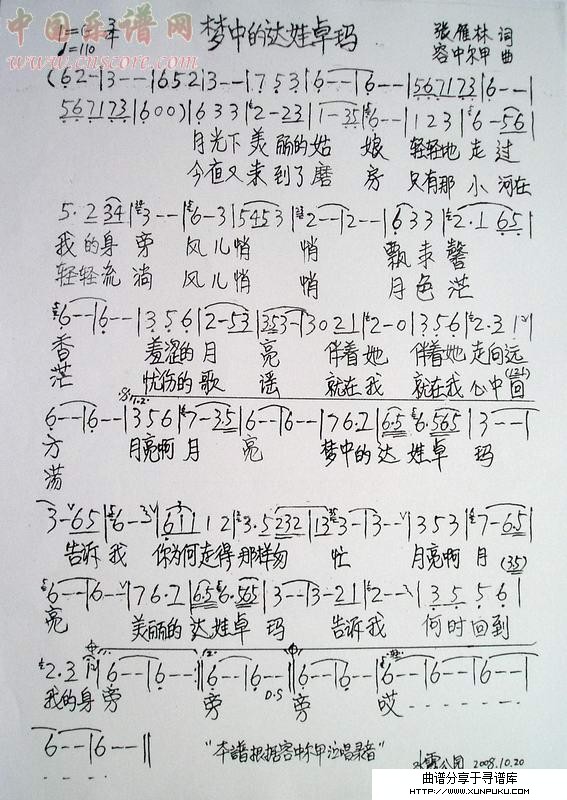 中国乐谱网
www.cnscore.com
1=G 3/4
♩=110
梦中的达娃卓玛
张雁林 词
容中尔甲 曲
(6 2 - | 3 - - | 1 6 5 2 | 3 - - | 1 7 5 3 | 6 - - | 6 - - | 567123 | 6 - - |
567123 | 6 0 0) | 6 3 3 | 2 - 23 | 1 - 35 | 6 - - | 1 2 3 | 6 - 56 |
月光下 美 丽的 姑 娘 轻轻地 走 过
今夜又 来 到了 磨 房 只有那 小 河在
5. 2 34 | 3 - - | 6 - 3 | 5453 | 2 - - | 2 - - | 6 3 3 | 2. 1 65 |
我 的身 旁 风儿悄 悄 飘来 馨
轻轻流 淌 风儿悄 悄 月色 茫
6 - - | 6 - - | 3 5 6 | 2 - 53 | 353 - | 3 0 21 | 2 - 0 | 3 5 6 | 2. 3 1 |
香 羞涩的 月 亮 伴着她 伴着她 走向远
茫 忧伤的 歌 谣 就在我 就在我 心中回
(121)
1.2.
6 - - | 6 - - | 3 5 6 | 7 - 35 | 6 - - | 6 - - | 7 6. 2 | 6.5 6.565 | 3 - - |
方 月亮啊 月 亮 梦中的 达 娃卓 玛
荡
3 - 65 | 6 - 3 | 61 1 2 | 3. 5 232 | 13 3 - | 3 - - | 3 5 3 | 7 - 65 |
告诉 我 你为何走得 那样匆 忙 月亮啊 月
(35)
6 - - | 6 - - | 7 6. 2 | 6.5 6.565 | 3 - - | 3 - 21 | 2 - - | 3 5 5 6 |
亮 美丽的 达娃卓 玛 告诉 我 何时回到
2. 3 | 6 - - | 6 - - :| 6 - - | 6 - - | 6 - - | 6 - - | 6 - - | 6 - - | 6 - - |
D.S
我的身 旁 旁 旁 哎
6 - - | 6 - - ||
"本谱根据容中尔甲演唱录音"
公园 2008.10.20
曲谱分享于寻谱库
HTTP://WWW.XUNPUKU.COM/